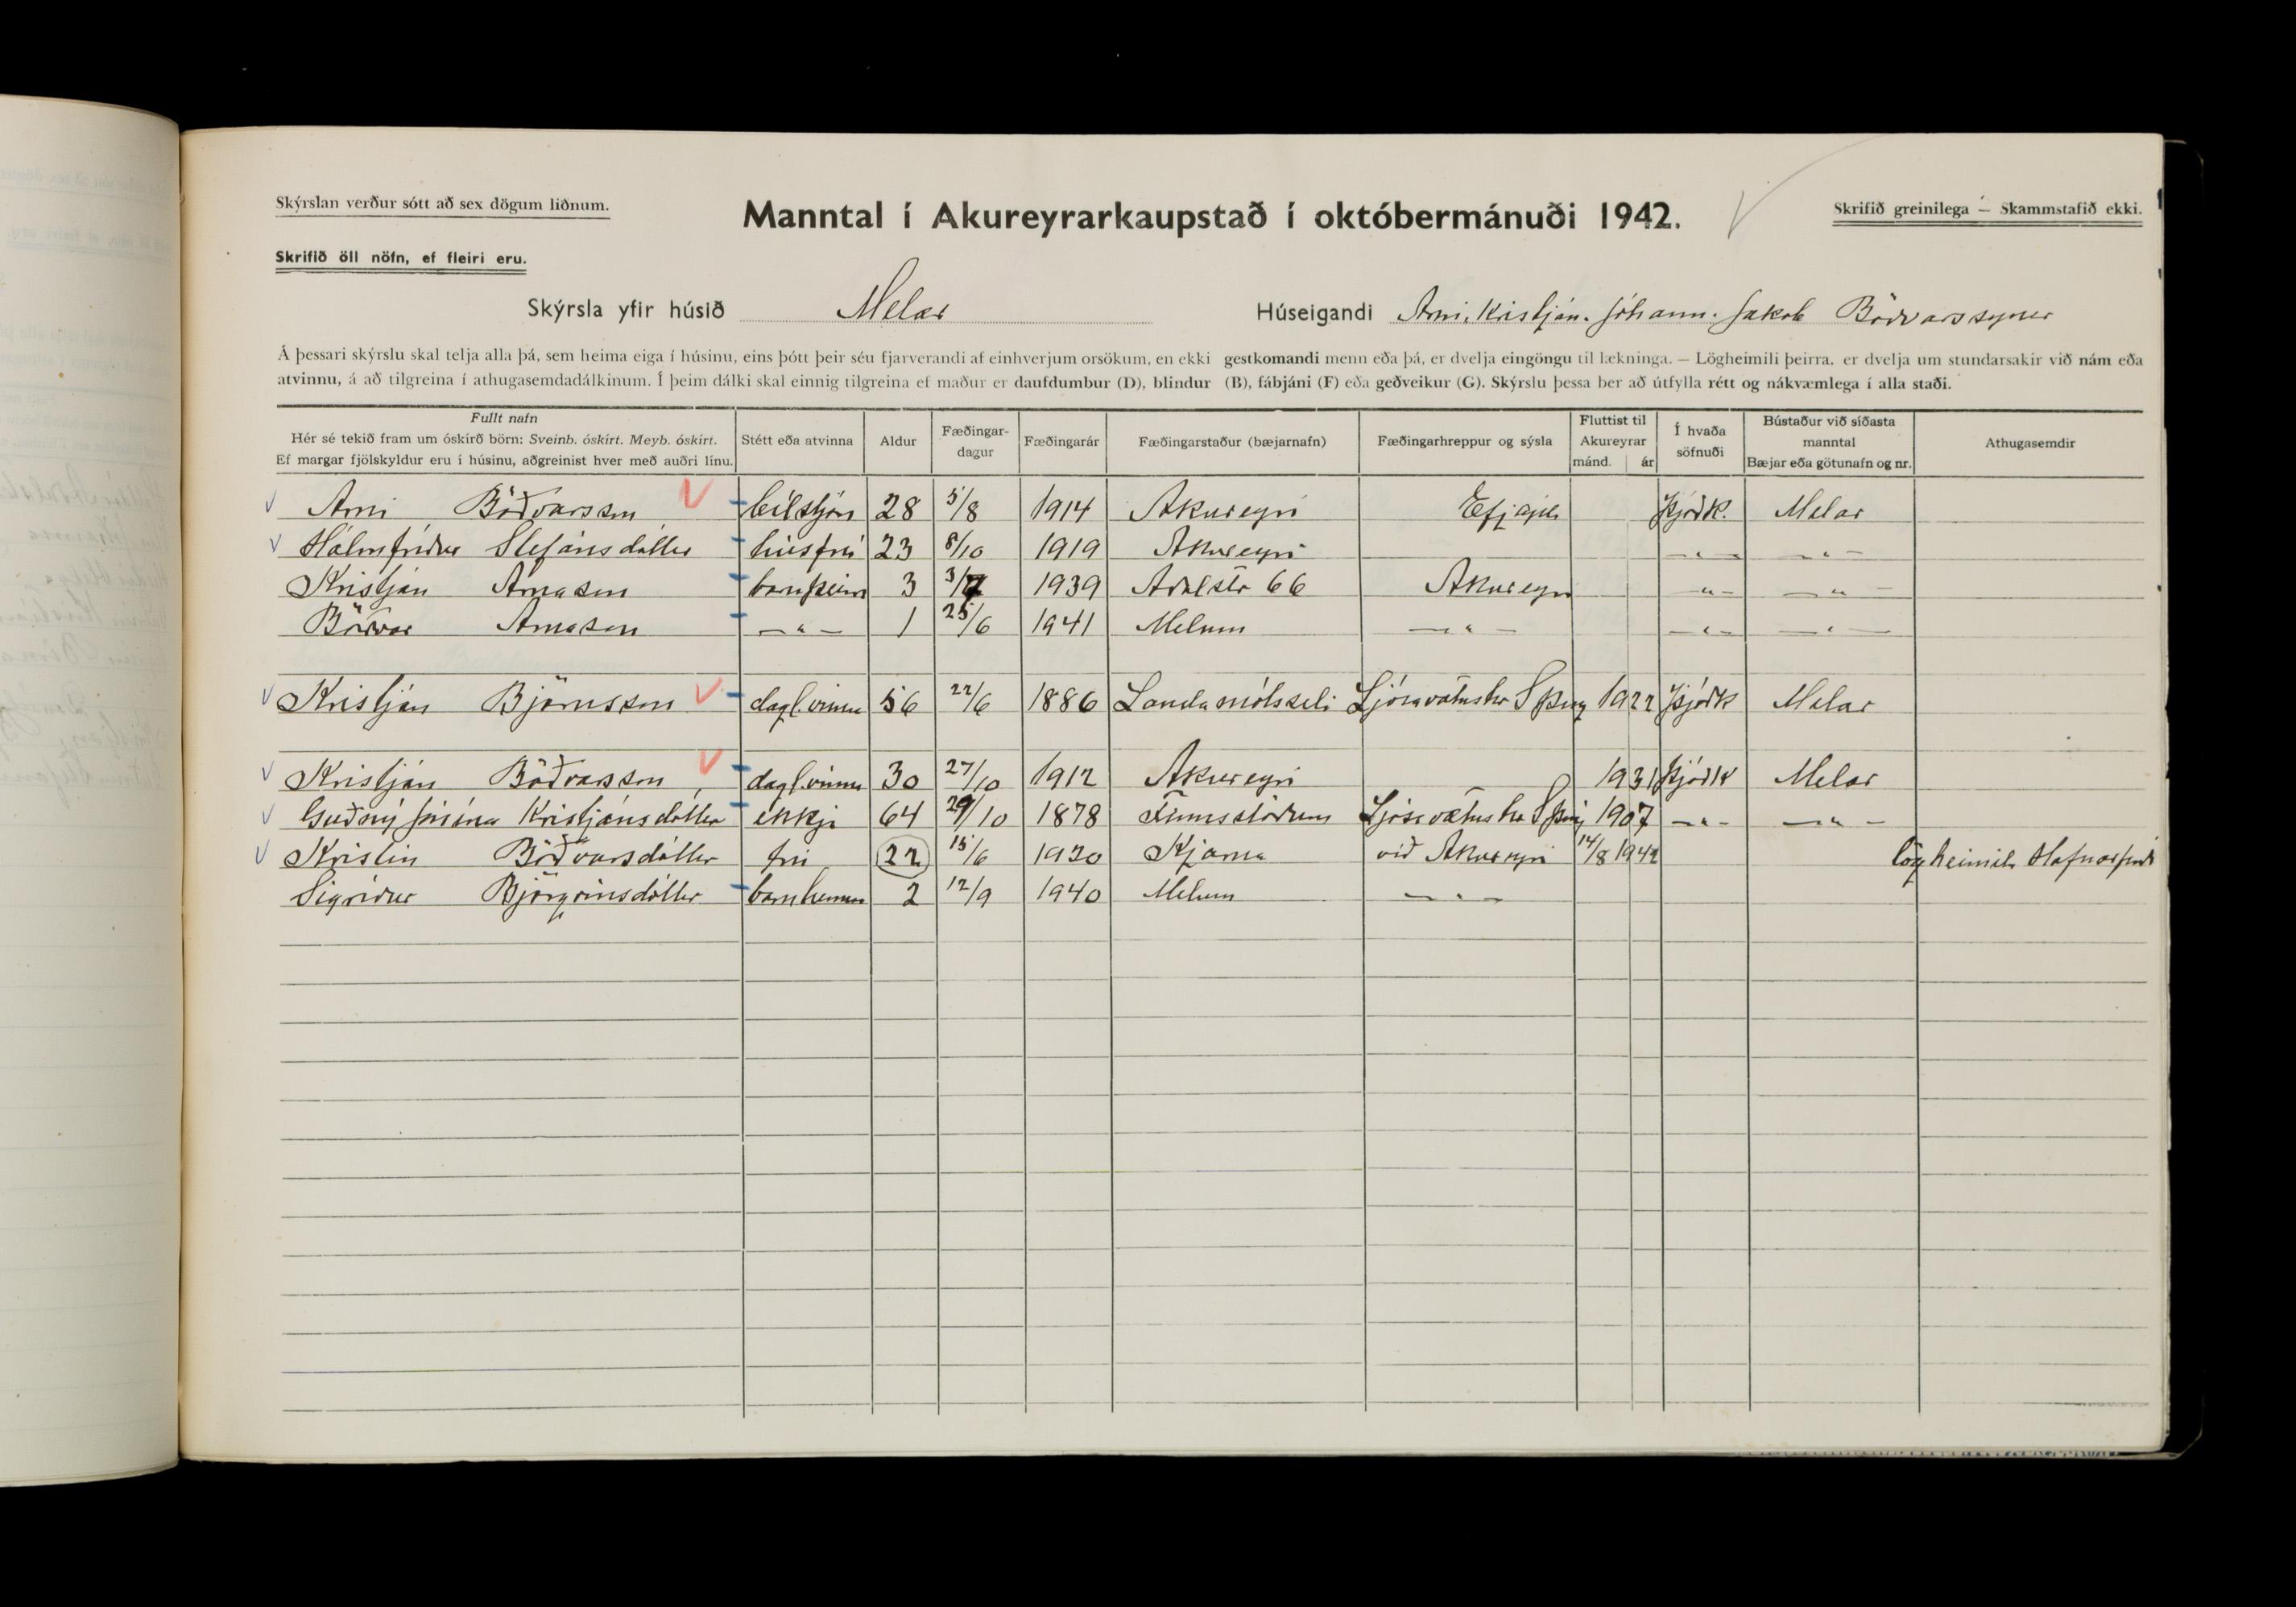 Skýrslan verður sótt að sex dögum liðnum.
Manntal í Akureyrarkaupstað í októbermánuði 1942.
Skrifið greinilega — Skammstafið ekki.
Skrifið öll nöfn, ef fleiri eru.
Skýrsla yfir húsið Melar Húseigandi Árni. Kristján. Jóhann. Jakob Böðvarssynir
Á þessari skýrslu skal telja alla þá, sem heima eiga í húsinu, eins þótt þeir séu fjarverandi af einhverjum orsökum, en ekki gestkomandi menn eða þá, er dvelja eingöngu til lækninga. — Lögheimili þeirra, er dvelja um stundarsakir við nám eða
atvinnu, á að tilgreina í athugasemdadálkinum. Í þeim dálki skal einnig tilgreina ef maður er daufdumbur (D), blindur (B), fábjáni (F) eða geðveikur (G). Skýrslu þessa ber að útfylla rétt og nákvæmlega í alla staði.
Fullt nafn
Hér sé tekið fram um óskírð börn: Sveinb. óskírt. Meyb. óskírt.
Ef margar fjölskyldur eru í húsinu, aðgreinist hver með auðri línu.
Stétt eða atvinna
Aldur
Fæðingar-
dagur
Fæðingarár
Fæðingarstaður (bæjarnafn)
Fæðingarhreppur og sýsla
Fluttist til
Akureyrar
mánd. ár
Í hvaða
söfnuði
Bústaður við síðasta
manntal
Bæjar eða götunafn og nr.
Athugasemdir
Árni Böðvarsson bílstjóri 28 5/8 1914 Akureyri Þjóðk. Melar
Hólmfríður Stefánsdóttir húsfrú 23 8/10 1919 Akureyri —"— —"—
Kristján Árnason barn heima 3 3/7 1939 Aðalstr 66 Akureyri —"— —"—
Böðvar Árnason —"— 1 25/6 1941 Melum —"— —"— —"—
Kristján Björnsson dagl.vinna 56 22/6 1886 Landamótsseli Ljósavatnshr S Þing 1922 Þjóðk Melar
Kristján Böðvarsson dagl.vinna 30 27/10 1912 Akureyri 1931 Þjóðk Melar
Guðný Kristjánsdóttir ekkja 64 29/10 1878 Finnsstöðum Ljósavatnshr S Þing 1907 —"— —"—
Kristín Böðvarsdóttir frú 22 15/6 1920 Kjarna við Akureyri 14/8 1942 lögheimili Hafnarfirði
Sigríður Björgvinsdóttir barn heima 2 12/9 1940 Melum —"—